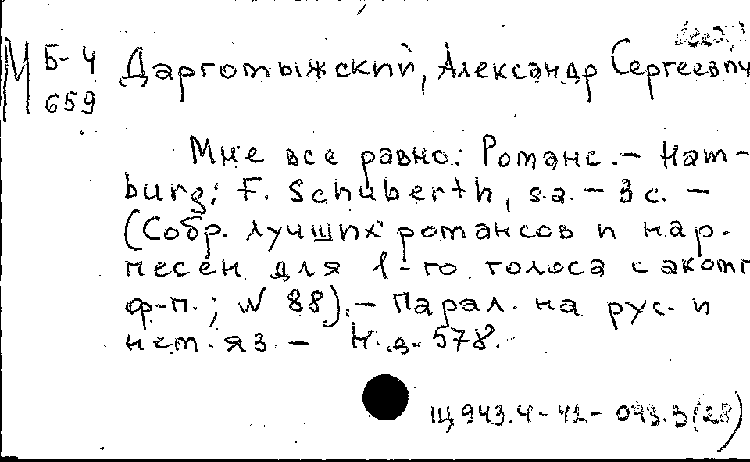 М Б-4 Даргомыжский, Александр Сергеевич
659
Мне все равно: Романс. – Ham-
burg: F. Schuberth, s.a. – 3 с. –
(Собр. лучших романсов и нар.
песен для 1-го голоса с акомп
ф-п.; N 88). – Парал. на рус. и
нем. яз. – Н.д. 578.
Щ943.4-42-043.3(28)